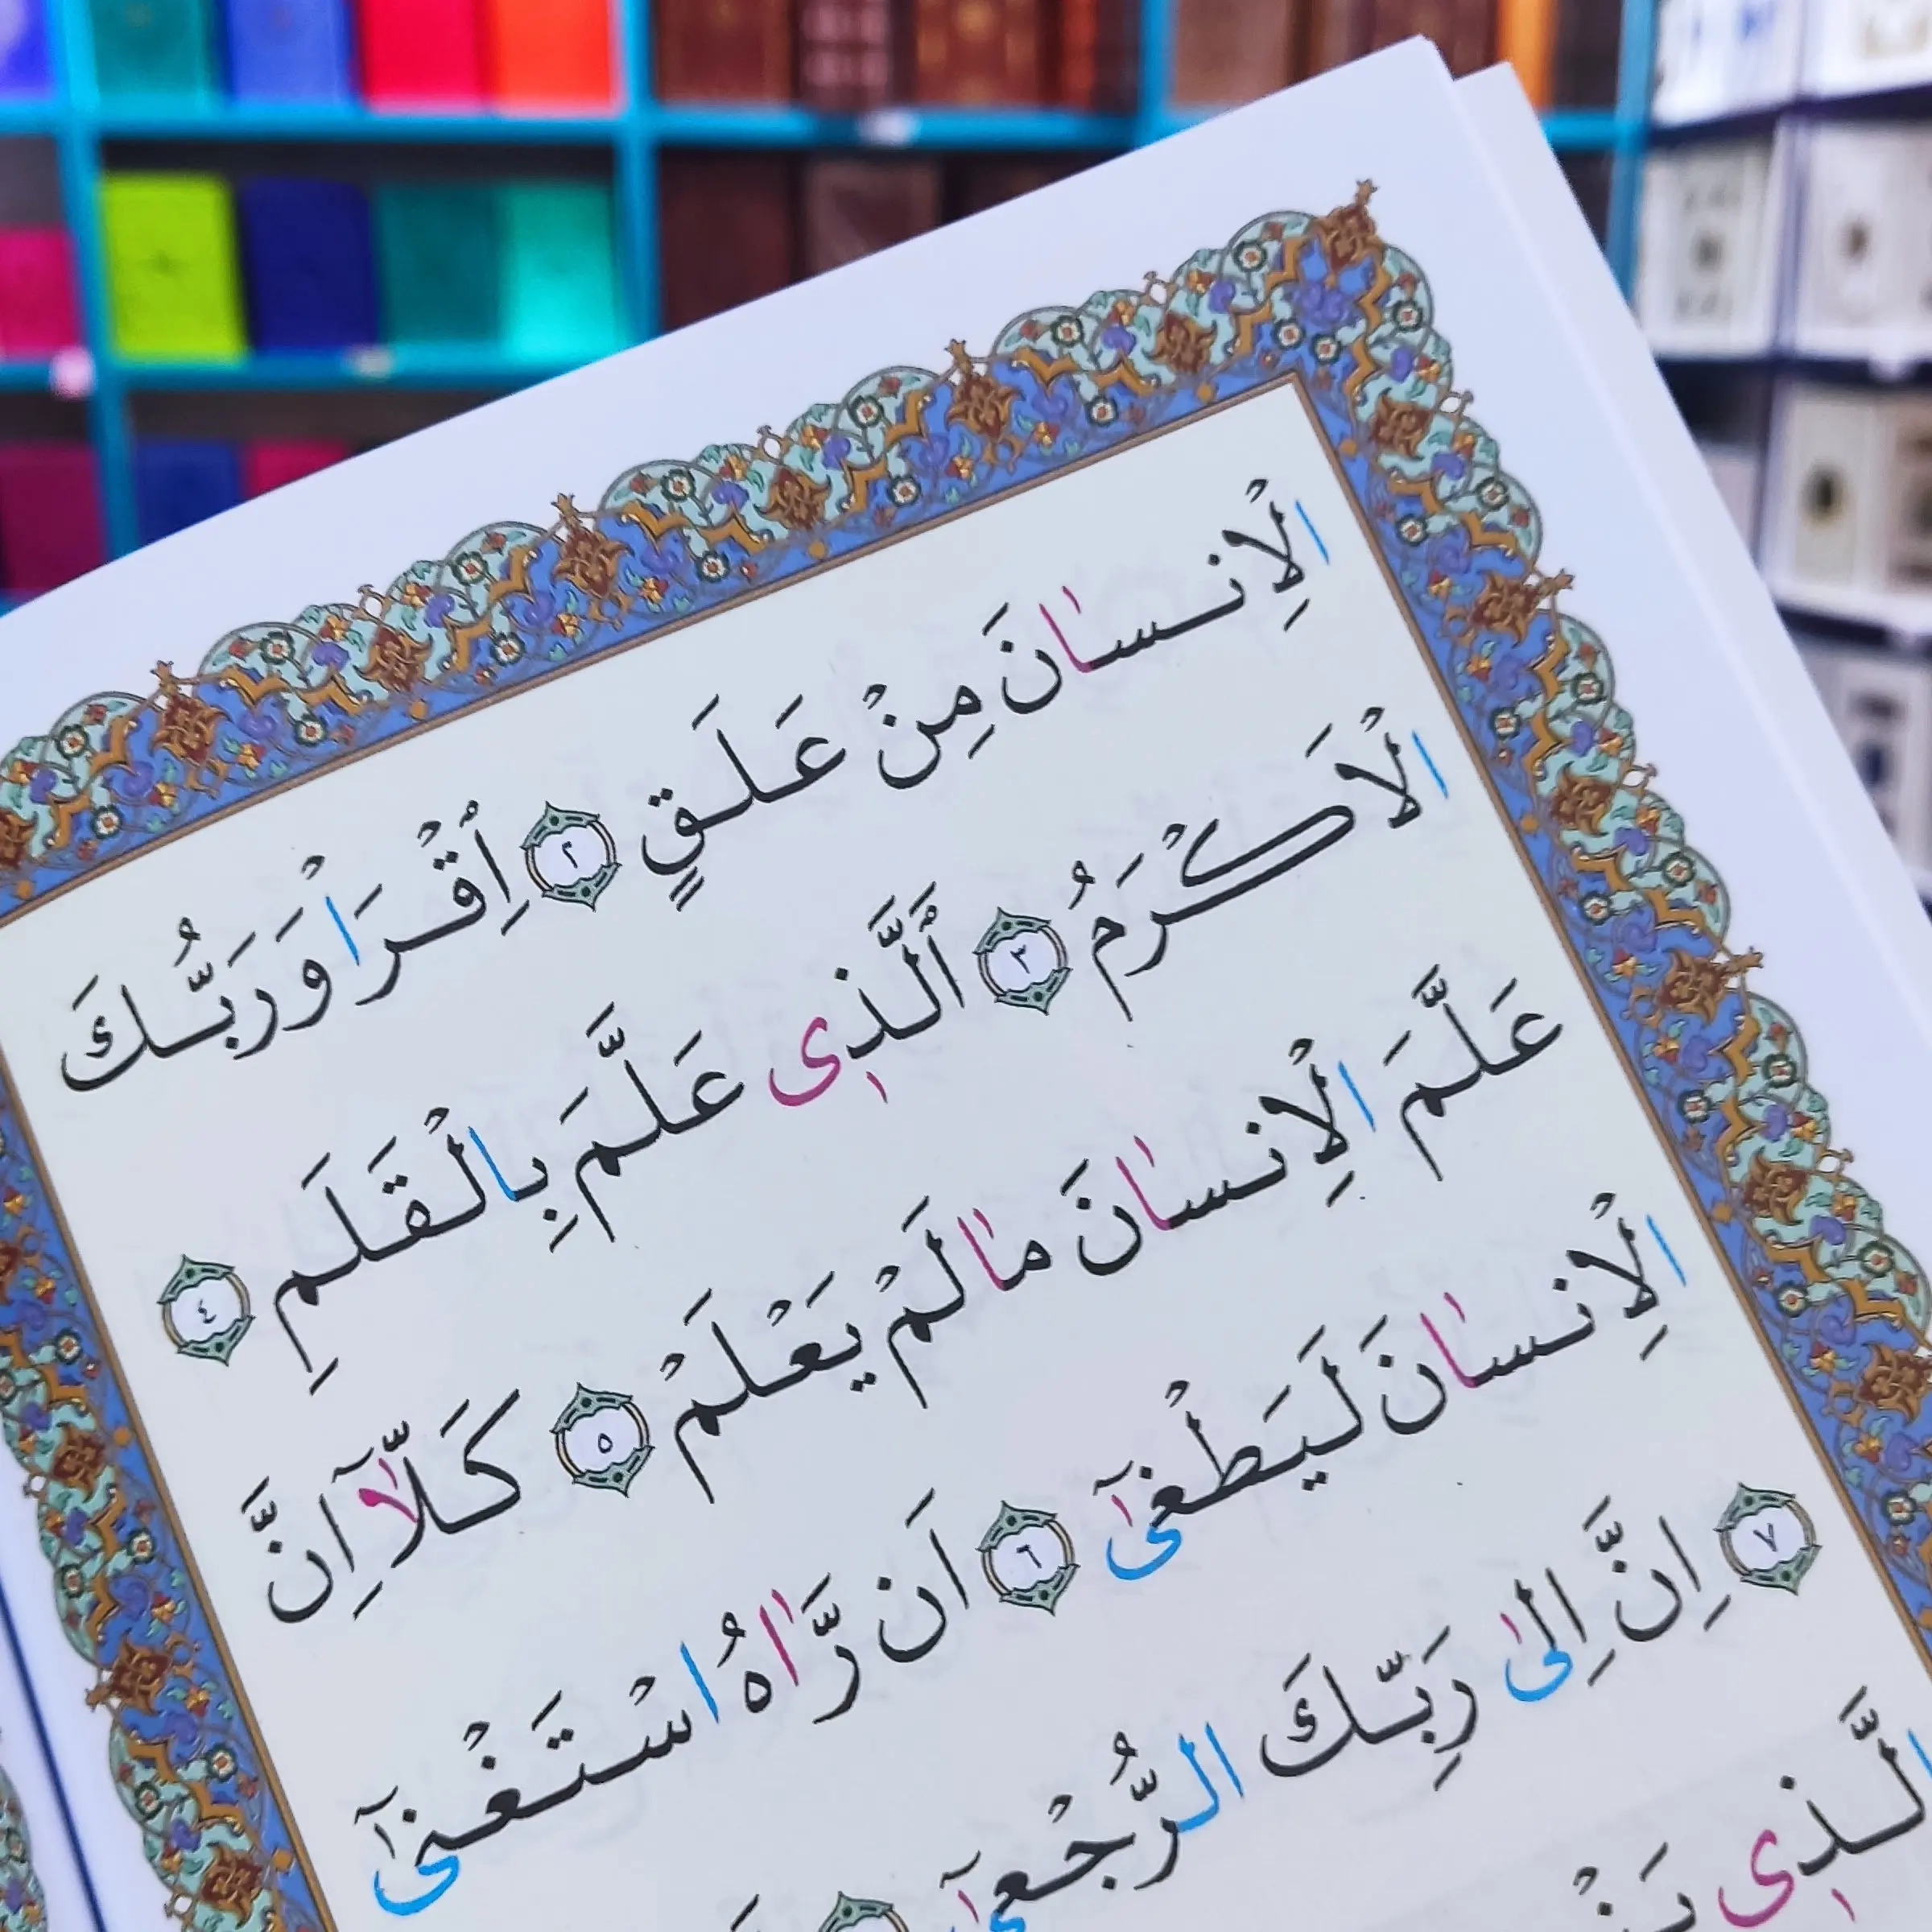 الْاِنسٰانَ مِنْ عَلَقٍ ﴿٢﴾ اِقْرَاْ وَرَبُّكَ
الْاَكْرَمُ ﴿٣﴾ اَلَّذى عَلَّمَ بِالْقَلَمِ ﴿٤﴾
عَلَّمَ الْاِنسٰانَ مٰا لَمْ يَعْلَمْ ﴿٥﴾ كَلّٰآ اِنَّ
الْاِنسٰانَ لَيَطْغىٰٓ ﴿٦﴾ اَن رَّاٰهُ اسْتَغْنىٰٓ
﴿٧﴾ اِنَّ اِلىٰ رَبِّكَ الرُّجْعىٰٓ
الَّذى